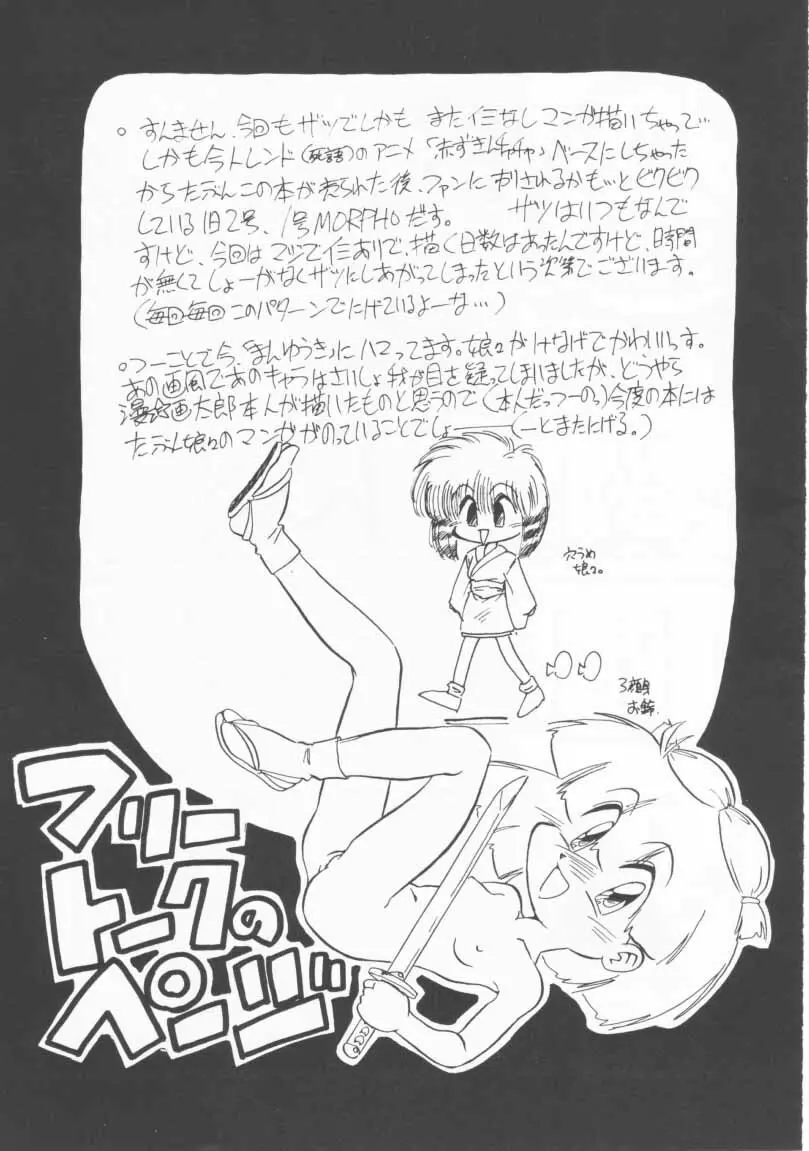 。すんません、今回もザツでしかも また イミなしマンガ描いちゃって…
しかも今トレンド(死語)のアニメ「赤ずきんチャチャ」ベースにしちゃった
からたぶんこの本が売られた後、ファンに刺されるかも…とビクビク
している旧2号、1号MORPHOだす。 ザツはいつもなんで
すけど、今回はマジでイミありで、描く日数はあったんですけど、時間
が無くてしょーがなくザツにしあがってしまったという次第でございます。
(毎回毎回このパターンでにげているよーな…)
。つーことで今、「まんゆうき」にハマってます。娘々がけなげでかわいいっす。
あの画風であのキャラはさいしょ我が目を疑ってしまいましたが、どうやら
漫☆画太郎本人が描いたものと思うので(本人だっつーのっ)今度の本には
たぶん娘々のマンガがのっていることでしょーーー(ーとまたにげる。)
穴うめ
娘々。
3頭身
お鈴.
フリー
トークの
ページ